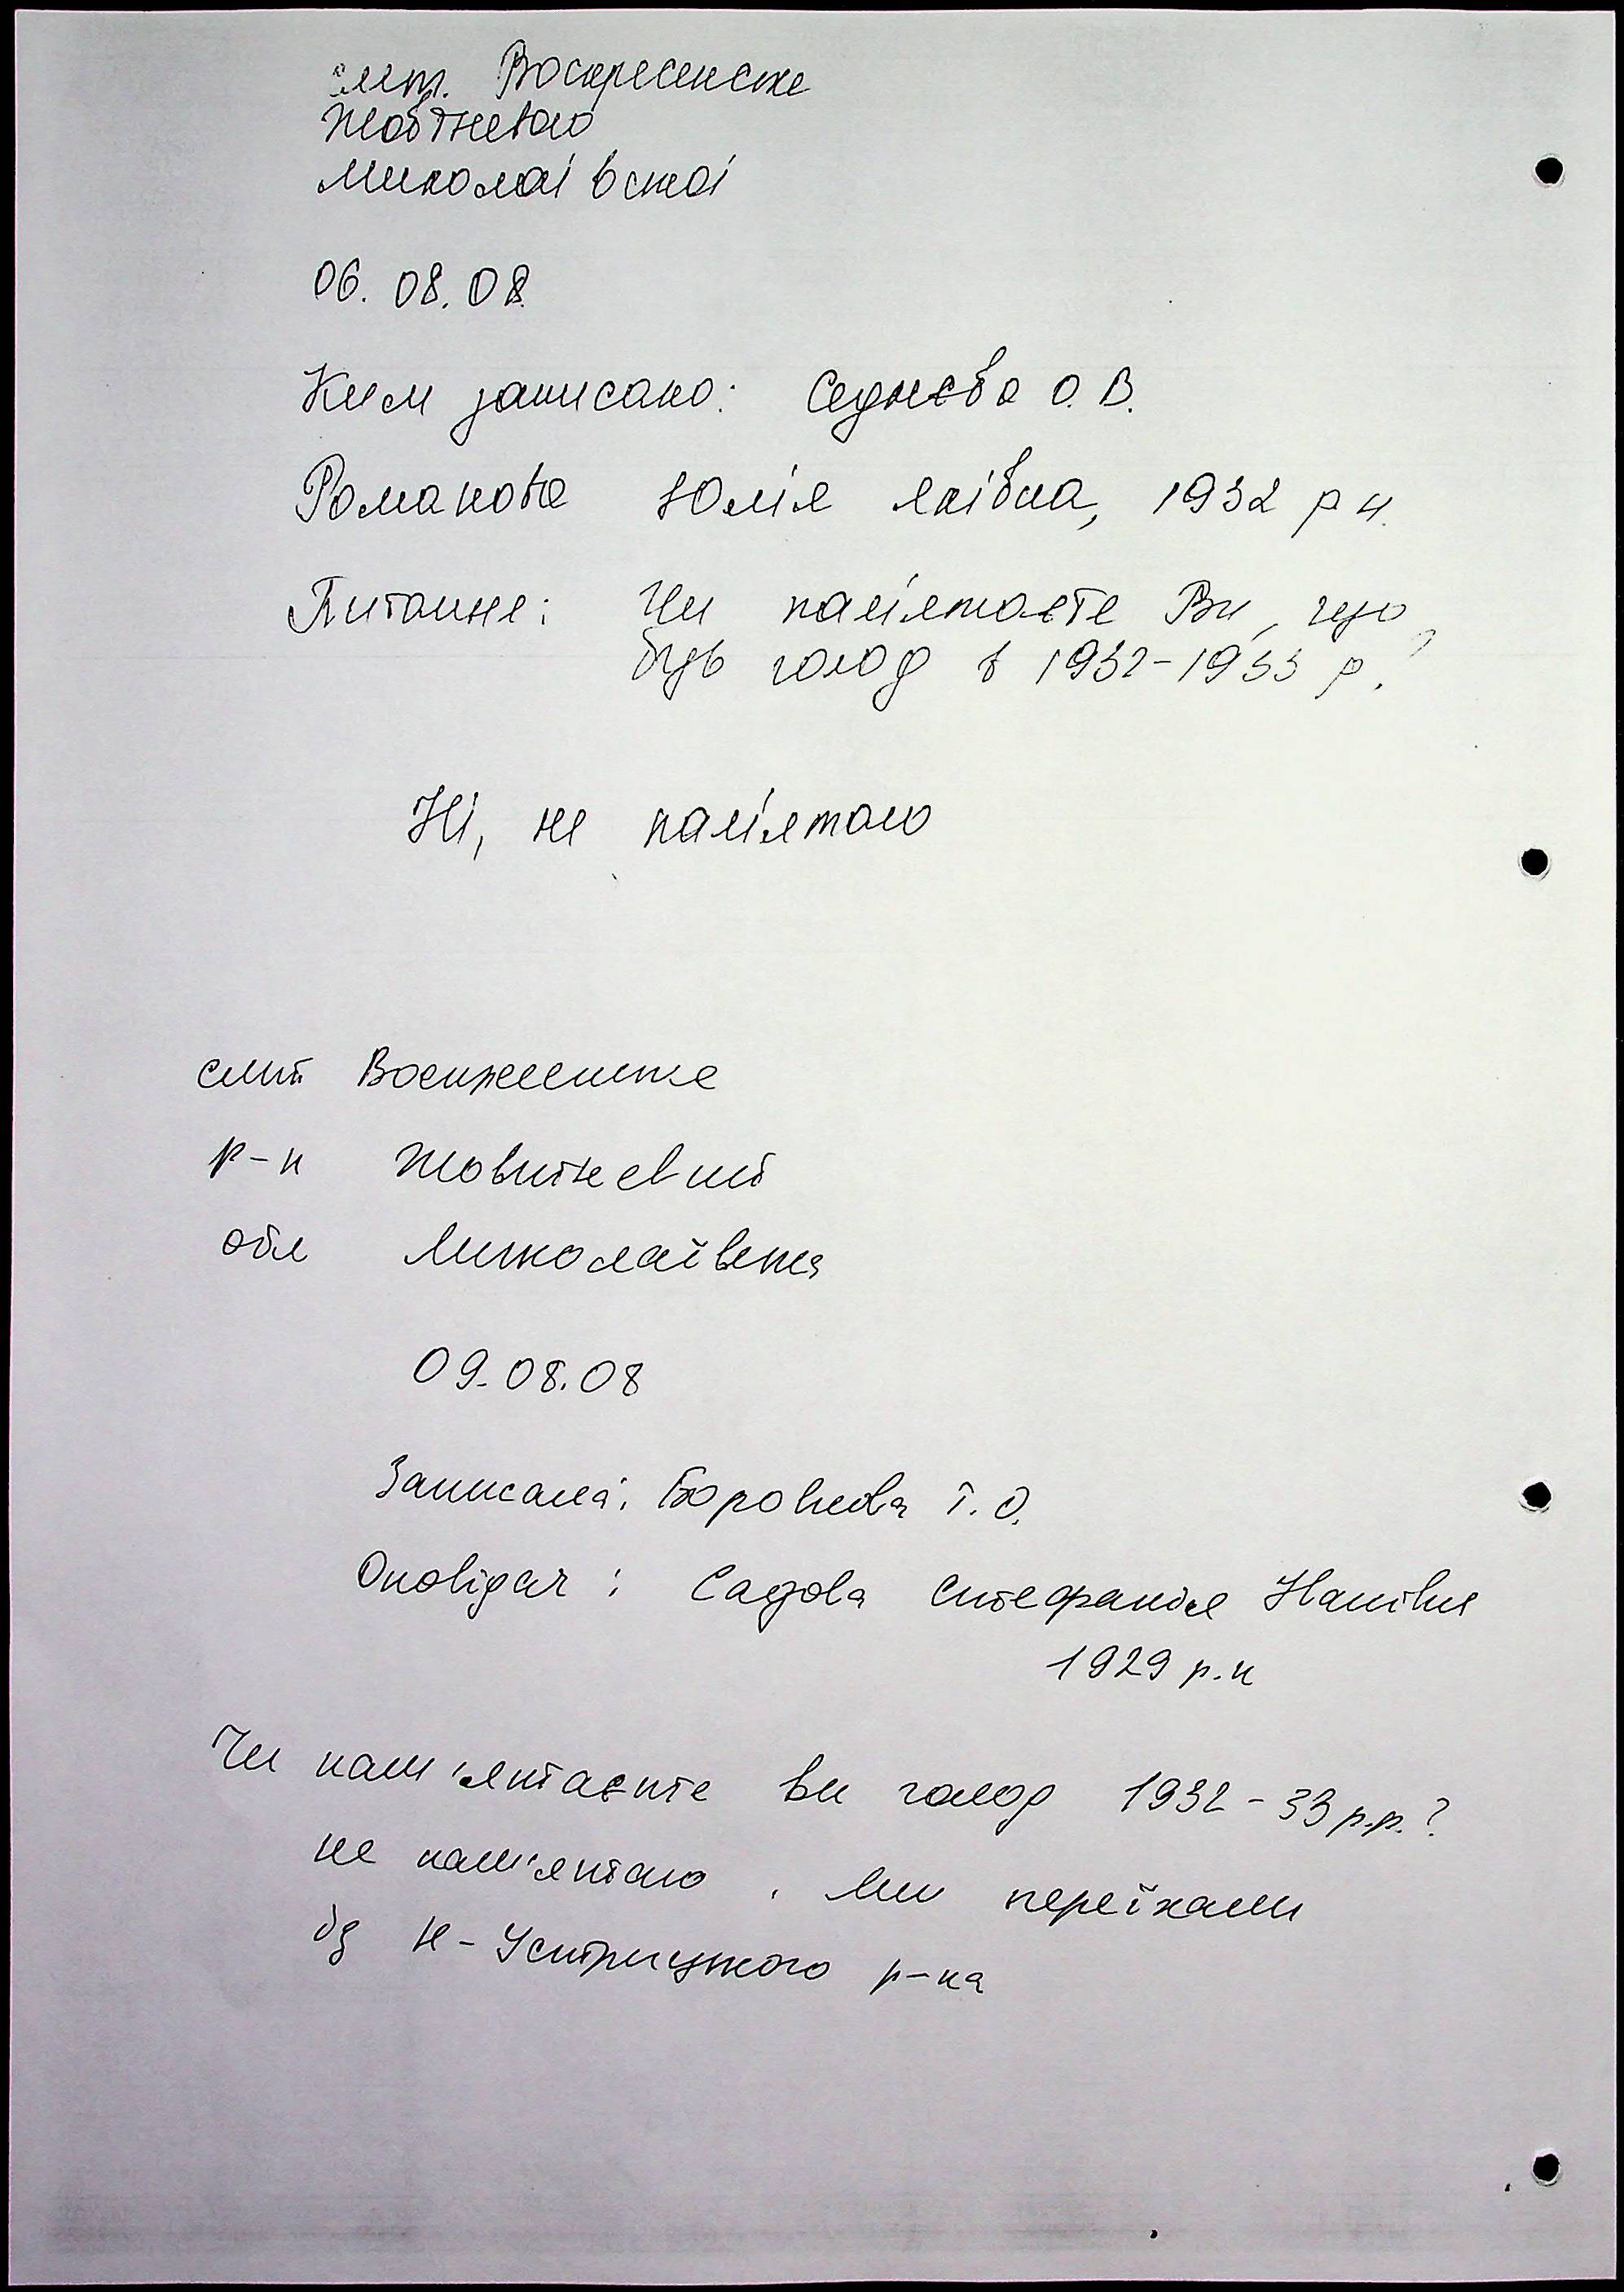 смт. Воскресенське
Жовтневого
Миколаївської
06.08.08
Ким записано: Седнєва О.В.
Романова Юлія Яківна, 1932 р н.
Питання: Чи пам'ятаєте Ви, що
будь голод в 1932-1933 р.?
Ні, не пам'ятаю
смт Воскресенське
р-н Жовтневий
обл Миколаївська
09.08.08
Записала: Боровкова Т.О.
Оповідач: Садова Стефанія
1929 р.н
Чи пам'ятаєте ви голод 1932-33 р.р.?
не пам'ятаю, ми переїхали
із Н-Устрицького р-на